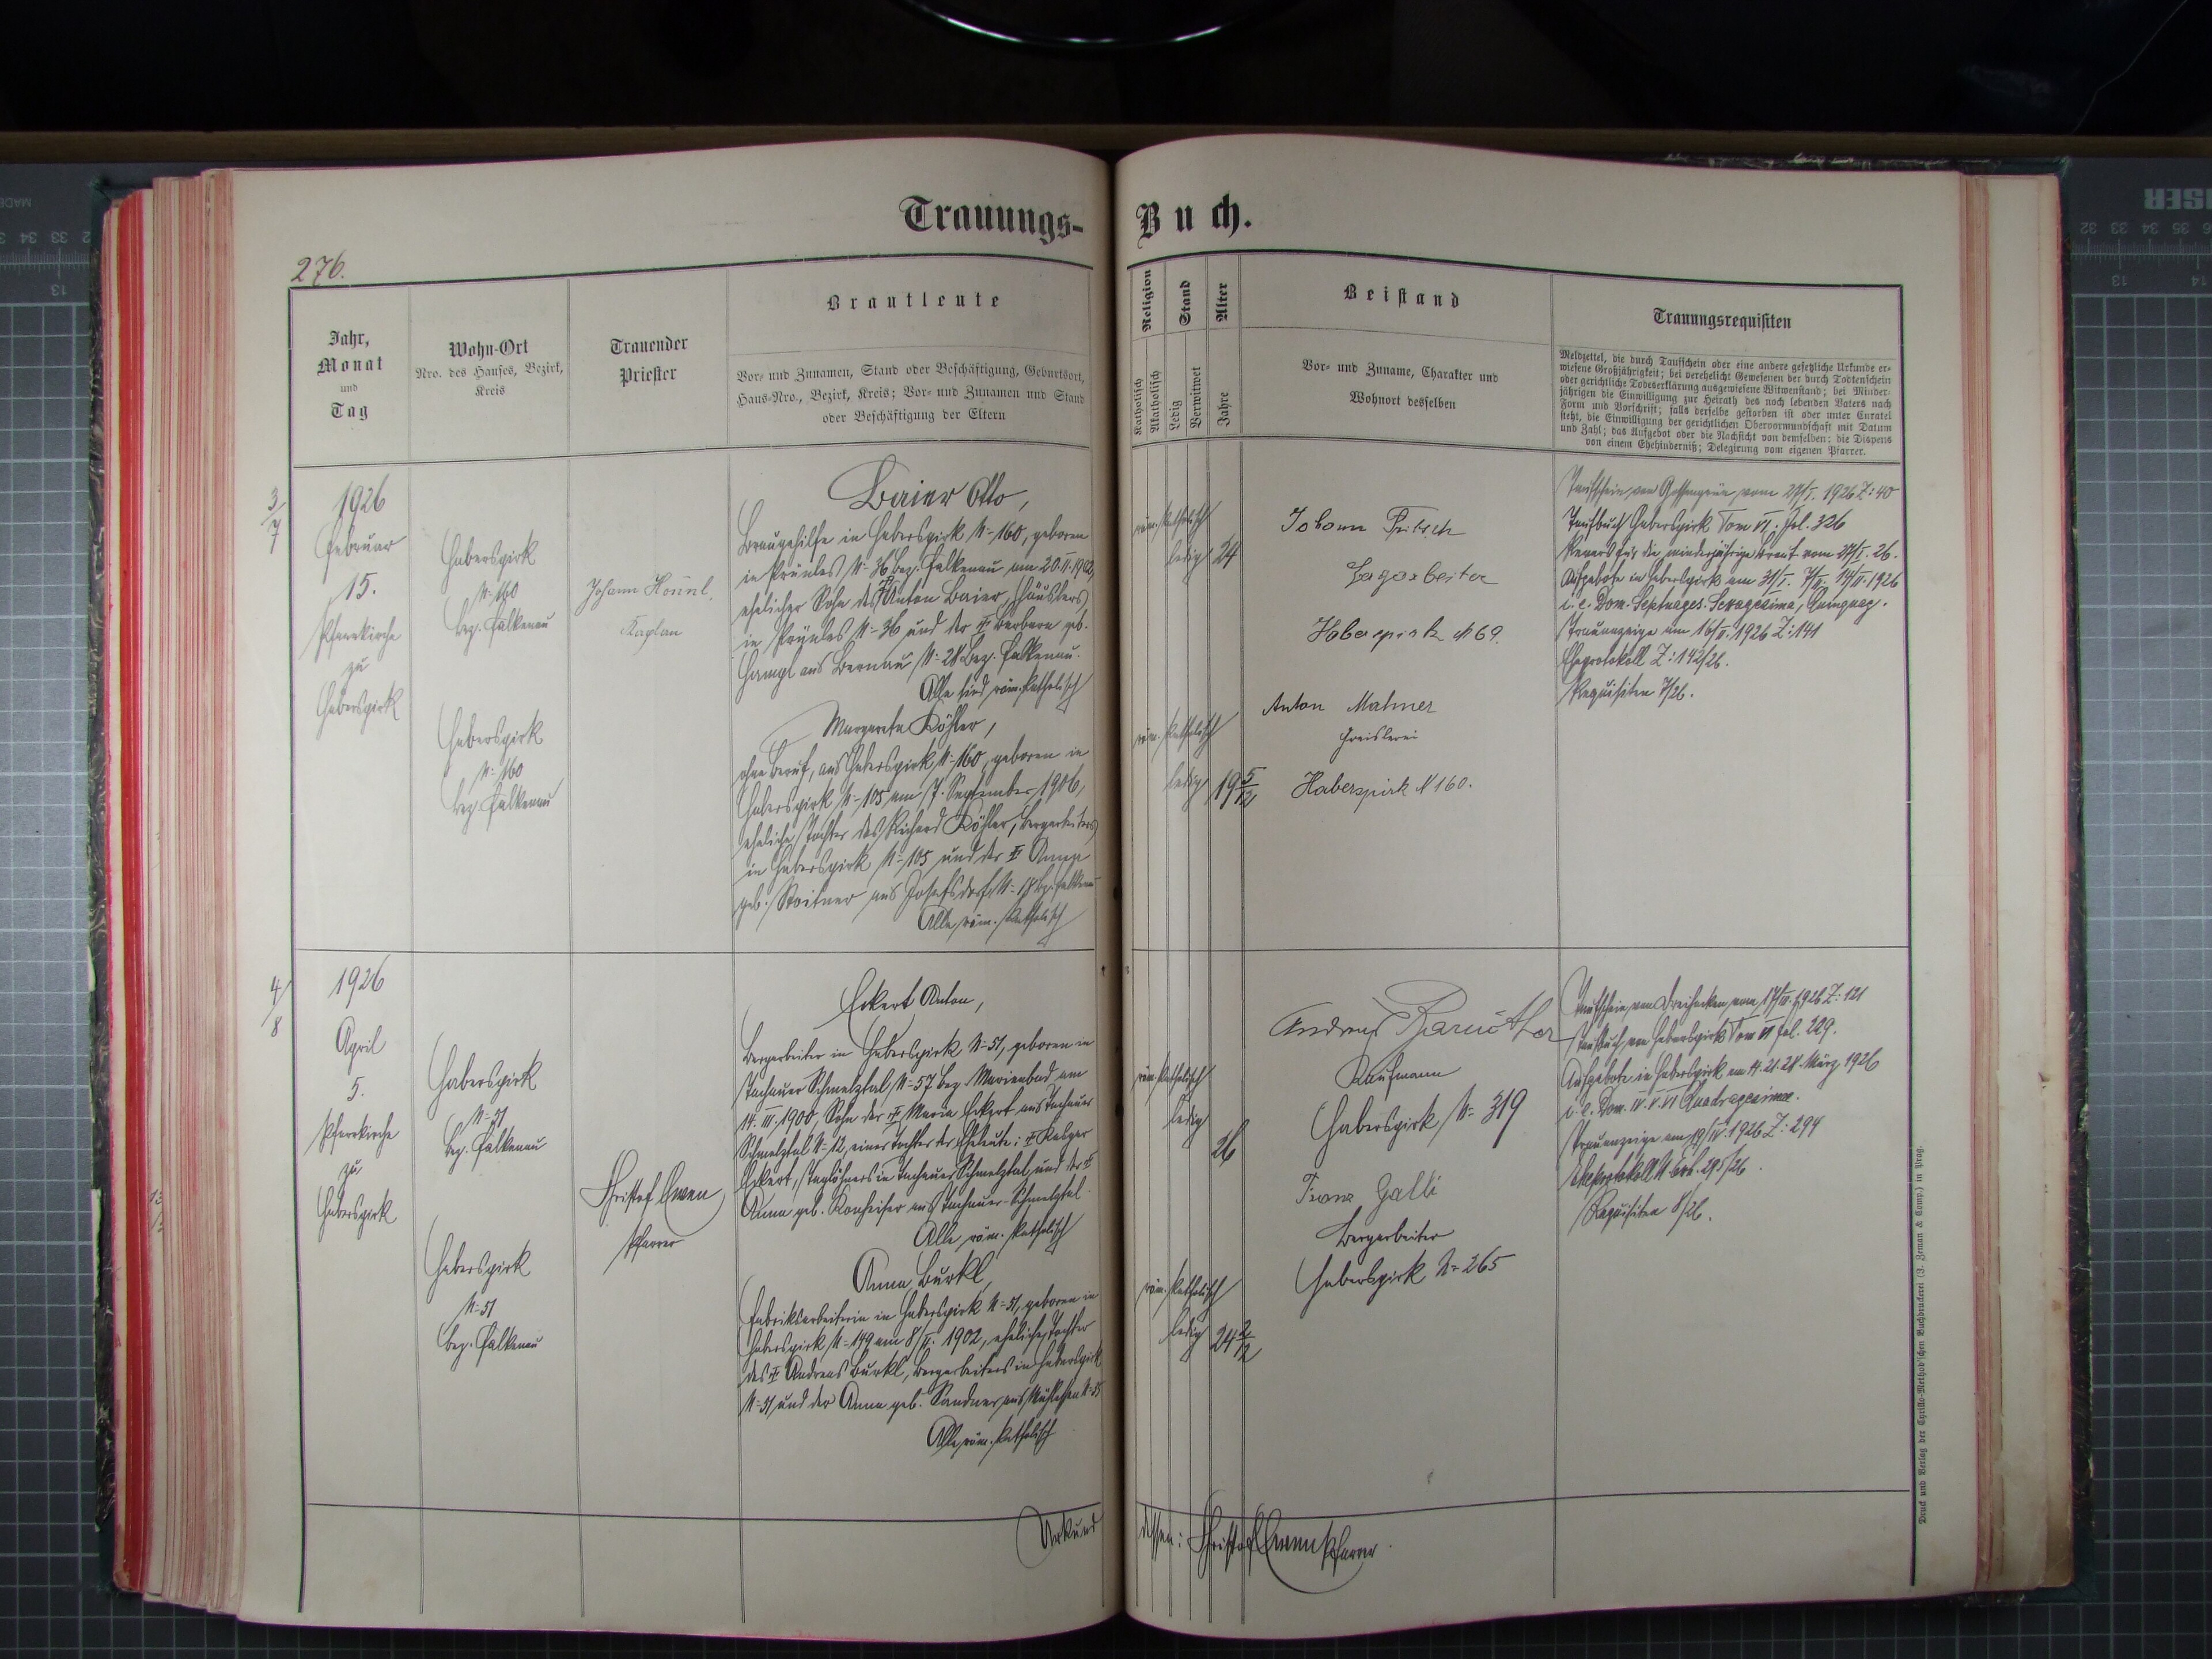 Trauungs-
Buch.
276.
Jahr,
Monat
und
Tag
Wohn-Ort
Nro. des Hauses, Bezirk,
Kreis
Trauender
Priester
Brautleute
Vor- und Zunamen, Stand oder Beschäftigung, Geburtsort,
Haus-Nro., Bezirk, Kreis; Vor- und Zunamen und Stand
oder Beschäftigung der Eltern
Religion
Katholisch
Akatholisch
Stand
Ledig
Verwitwet
Alter
Jahre
Beistand
Vor- und Zuname, Charakter und
Wohnort desselben
Trauungsrequisiten
Meldzettel, die durch Taufschein oder eine andere gesetzliche Urkunde er-
wiesene Großjährigkeit; bei verehelicht Gewesenen der durch Todtenschein
oder gerichtliche Todeserklärung ausgewiesene Witwenstand; bei Minder-
jährigen die Einwilligung zur Heirath des noch lebenden Vaters nach
Form und Vorschrift; falls derselbe gestorben ist oder unter Curatel
steht, die Einwilligung der gerichtlichen Obervormundschaft mit Datum
und Zahl; das Aufgebot oder die Nachsicht von demselben; die Dispens
von einem Ehehinderniß; Delegirung vom eigenen Pfarrer.
3/7
1926
Februar
15.
Pfarrkirche
zu
Haberspirk
Haberspirk
N= 160
bez. Falkenau
Haberspirk
N= 160
bez. Falkenau
Johann Honnl.
Kaplan
Baier Otto,
Braugehilfe in Haberspirk N= 160, geboren
in Prünles N= 36 bez. Falkenau am 20.II.1902,
ehelicher Sohn des Anton Baier, Häuslers
in Prünles N= 36 und der Barbara geb.
Hampl aus Bernau N= 28 bez. Falkenau.
Alle sind röm. katholisch
Margareta Köhler,
ohne Beruf, aus Haberspirk N= 160, geboren in
Haberspirk N= 105 am 7. September 1906,
eheliche Tochter des Richard Köhler, Bergarbeiters
in Haberspirk N= 105 und der Anna
geb. Stoitner aus Josefsdorf N= 18 bz. Falkenau
Alle röm. katholisch
röm. katholisch
ledig 24
röm. katholisch
ledig 19 5/12
Johann Fritsch
Sagarbeiter
Haberspirk N 69.
Anton Mahner
Greislerei
Haberspirk N 160.
Taufschein von Gossengrün vom 27/I. 1926 Z: 40
Taufbuch Haberspirk Tom VI. fol. 326
Revers für die minderjährige Braut vom 27/I. 26.
Aufgebote in Haberspirk am 31/I. 7/II. 14/II. 1926
i. e. Dom. Septuages. Sexagesima, Quinquag.
Trauanzeige am 16/II. 1926 Z: 141
Eheprotokoll Z: 142/26.
Requisiten 7/26.
4/8
1926
April
5.
Pfarrkirche
zu
Haberspirk
Haberspirk
N= 51
bez. Falkenau
Haberspirk
N= 51
bez. Falkenau
Christof Ewen
Pfarrer
Eckert Anton,
Bergarbeiter in Haberspirk N= 51, geboren in
Tachauer Schmelztal N= 57 bez. Marienbad am
14. III. 1900, Sohn der Maria Eckert aus Tachauer
Schmelztal N= 12, einer Tochter der Eheleute: Kaspar
Eckert, Taglöhners in Tachauer Schmelztal und der
Anna geb. Konheiser aus Tachauer-Schmelztal.
Alle röm. katholisch
Anna Burkl,
Fabriksarbeiterin in Haberspirk N= 51, geboren in
Haberspirk N= 149 am 8/II. 1902, eheliche Tochter
des Andreas Burkl, Bergarbeiters in Haberspirk
N= 51 und der Anna geb. Sandner aus N= 55
Alle röm. katholisch
röm. katholisch
ledig
26
röm. katholisch
ledig 24 2/12
Andreas
Kaufmann
Haberspirk N= 319
Franz Galli
Bergarbeiter
Haberspirk N= 265
Taufschein von Dreihacken vom 17/III. 1926 Z: 121
Taufbuch von Haberspirk Tom VI fol. 229.
Aufgebote in Haberspirk am 14. 21. 28. März 1926
i. e. Dom. IV. V. VI Quadragesimae.
Trauanzeige am 19/IV. 1926 Z: 294
Eheprotokoll 295/26.
Requisiten 8/26.
Urkund dessen: Christof Ewen Pfarrer.
Druck und Verlag der Cyrillo-Method'schen Buchdruckerei (J. Zeman & Comp.) in Prag.